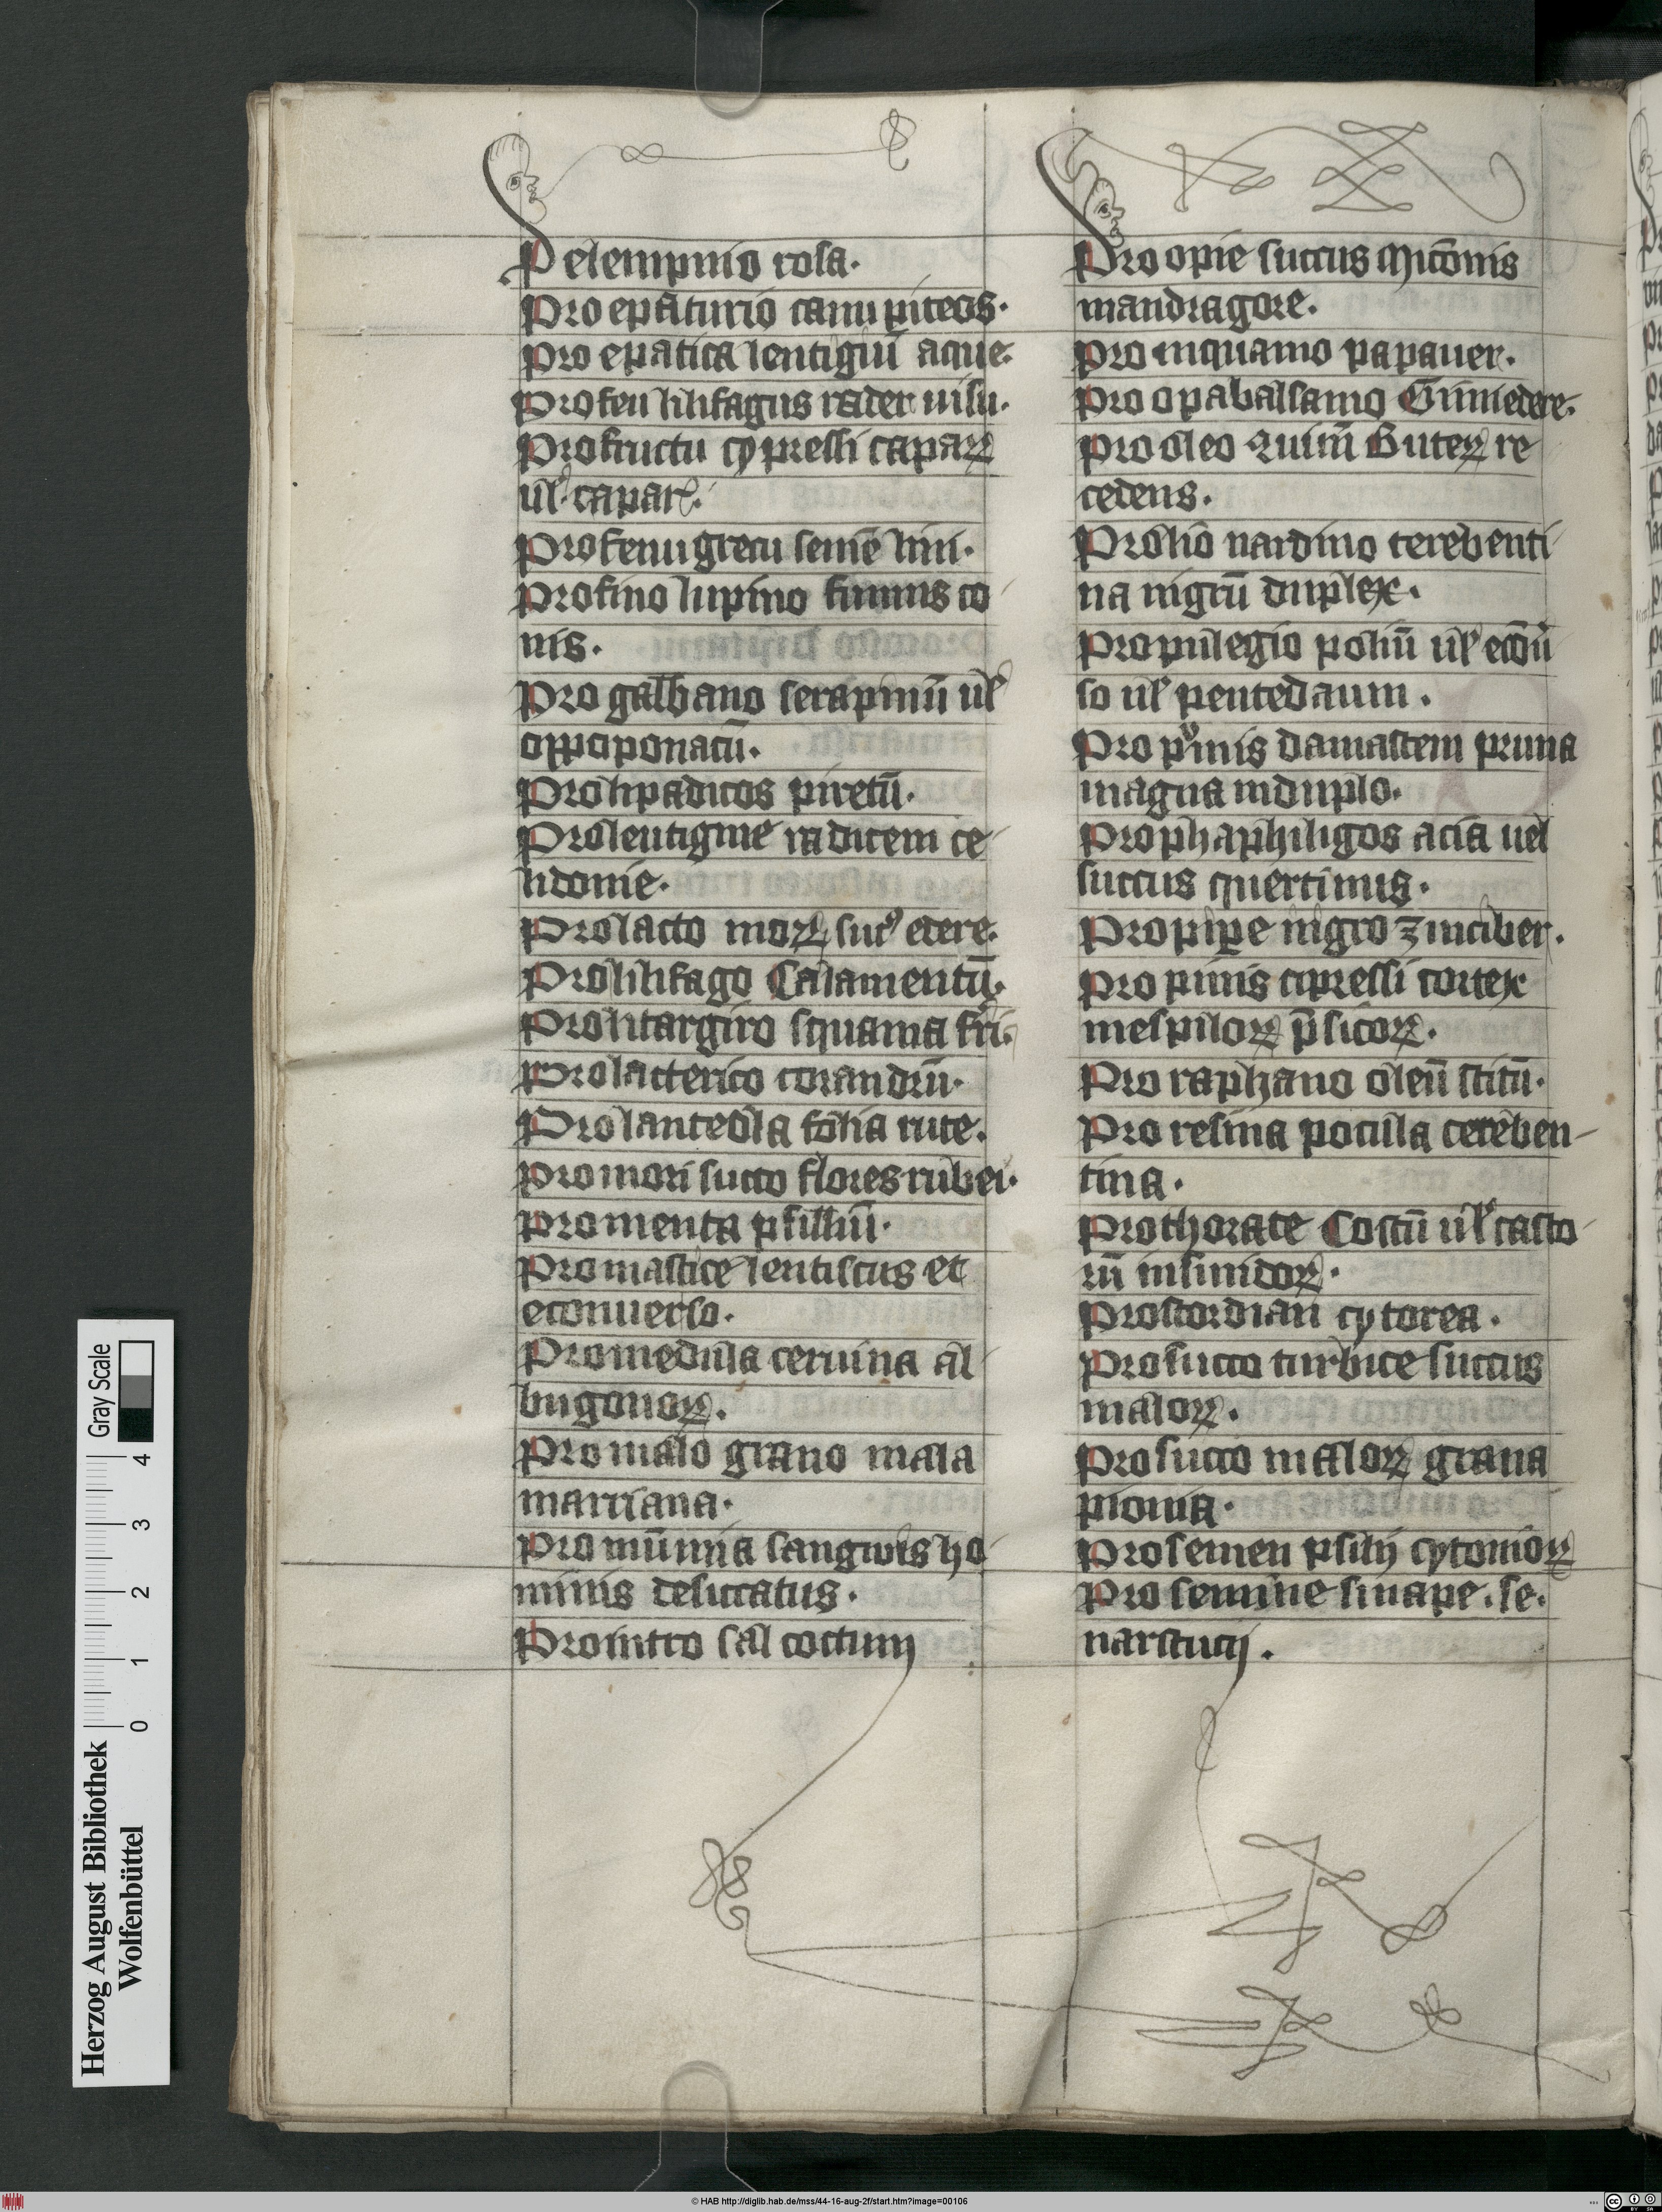 P elempnio rosa.
Pro epaturio camipiteos.
Pro epatica lentigiū aque.
Pro feu lilifagus
Pro fructu cypressi capaꝝ
ul' capar.
Pro fenugrecu semē lini.
Pro fino lupino fimus ca
nis.
Pro galbano serapinū ul'
oppoponacū.
Pro lipadicos piretū.
Pro lentigine radicem ce
lidonie.
Pro lacto moꝝ suc⁹ edere.
Pro lilifago Calamentū.
Pro litargiro squama fri.
Pro lacterico coriandrū.
Pro lanceola folia rute.
Pro mori succo flores rubei.
Pro menta psilliū.
Pro mastice lentiscus et
econuerso.
Pro medulla ceruina al
bugonoꝝ.
Pro malo grano mala
marciana.
Pro mūmia sangwis ho
minis desiccatus.
Pro nitro sal coctum
Pro opie succus Micōnis
mandragore.
Pro inquamo papauer.
Pro opabalsamo Gūmi edere.
Pro oleo
cedens.
Pro olio nardino terebenti
na nigrū duplex.
Pro pulegio poliū ul' ecōu
so ul' pentedaum.
Pro pͮinis damascem pruna
magna induplo.
Pro phaphiligos acia uel
succus quercinus.
Pro pipe nigro zinciber.
Pro pinis cipressi cortex
mespiloꝝ p̄sicoꝝ.
Pro raphano oleū stitū.
Pro resina pocilla cereben-
tina.
Pro thorace Costū ul' casto
riū insimidoꝝ.
Pro scordian cytorea.
Pro succo turbice succus
maloꝝ.
Pro succo maloꝝ grana
pionia.
Pro semen psilij cytonioꝝ
Pro semine sinape. se.
narstucij.
Herzog August Bibliothek
Wolfenbüttel
0 1 2 3 4
Gray Scale
© HAB http://diglib.hab.de/mss/44-16-aug-2f/start.htm?image=00106